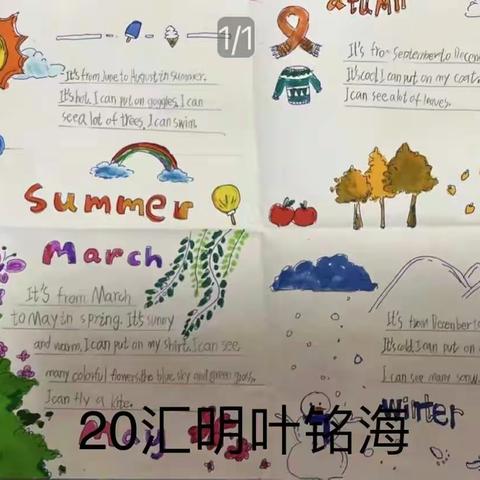 1/1
It's from June to August in summer.
It's hot. I can put on goggles. I can
see a lot of trees. I can swim.
Summer
atumn
It's from September to Decem
It's cool. I can put on my coat.
I can see a lot of leaves.
March
It's from March
to May in spring. It's sunny
and warm. I can put on my shirt. I can see
many colorful flowers, the blue sky and green grass.
I can fly a kite.
May
It's from December to
It's cold. I can put on
I can see many
Winter
20汇明叶铭海